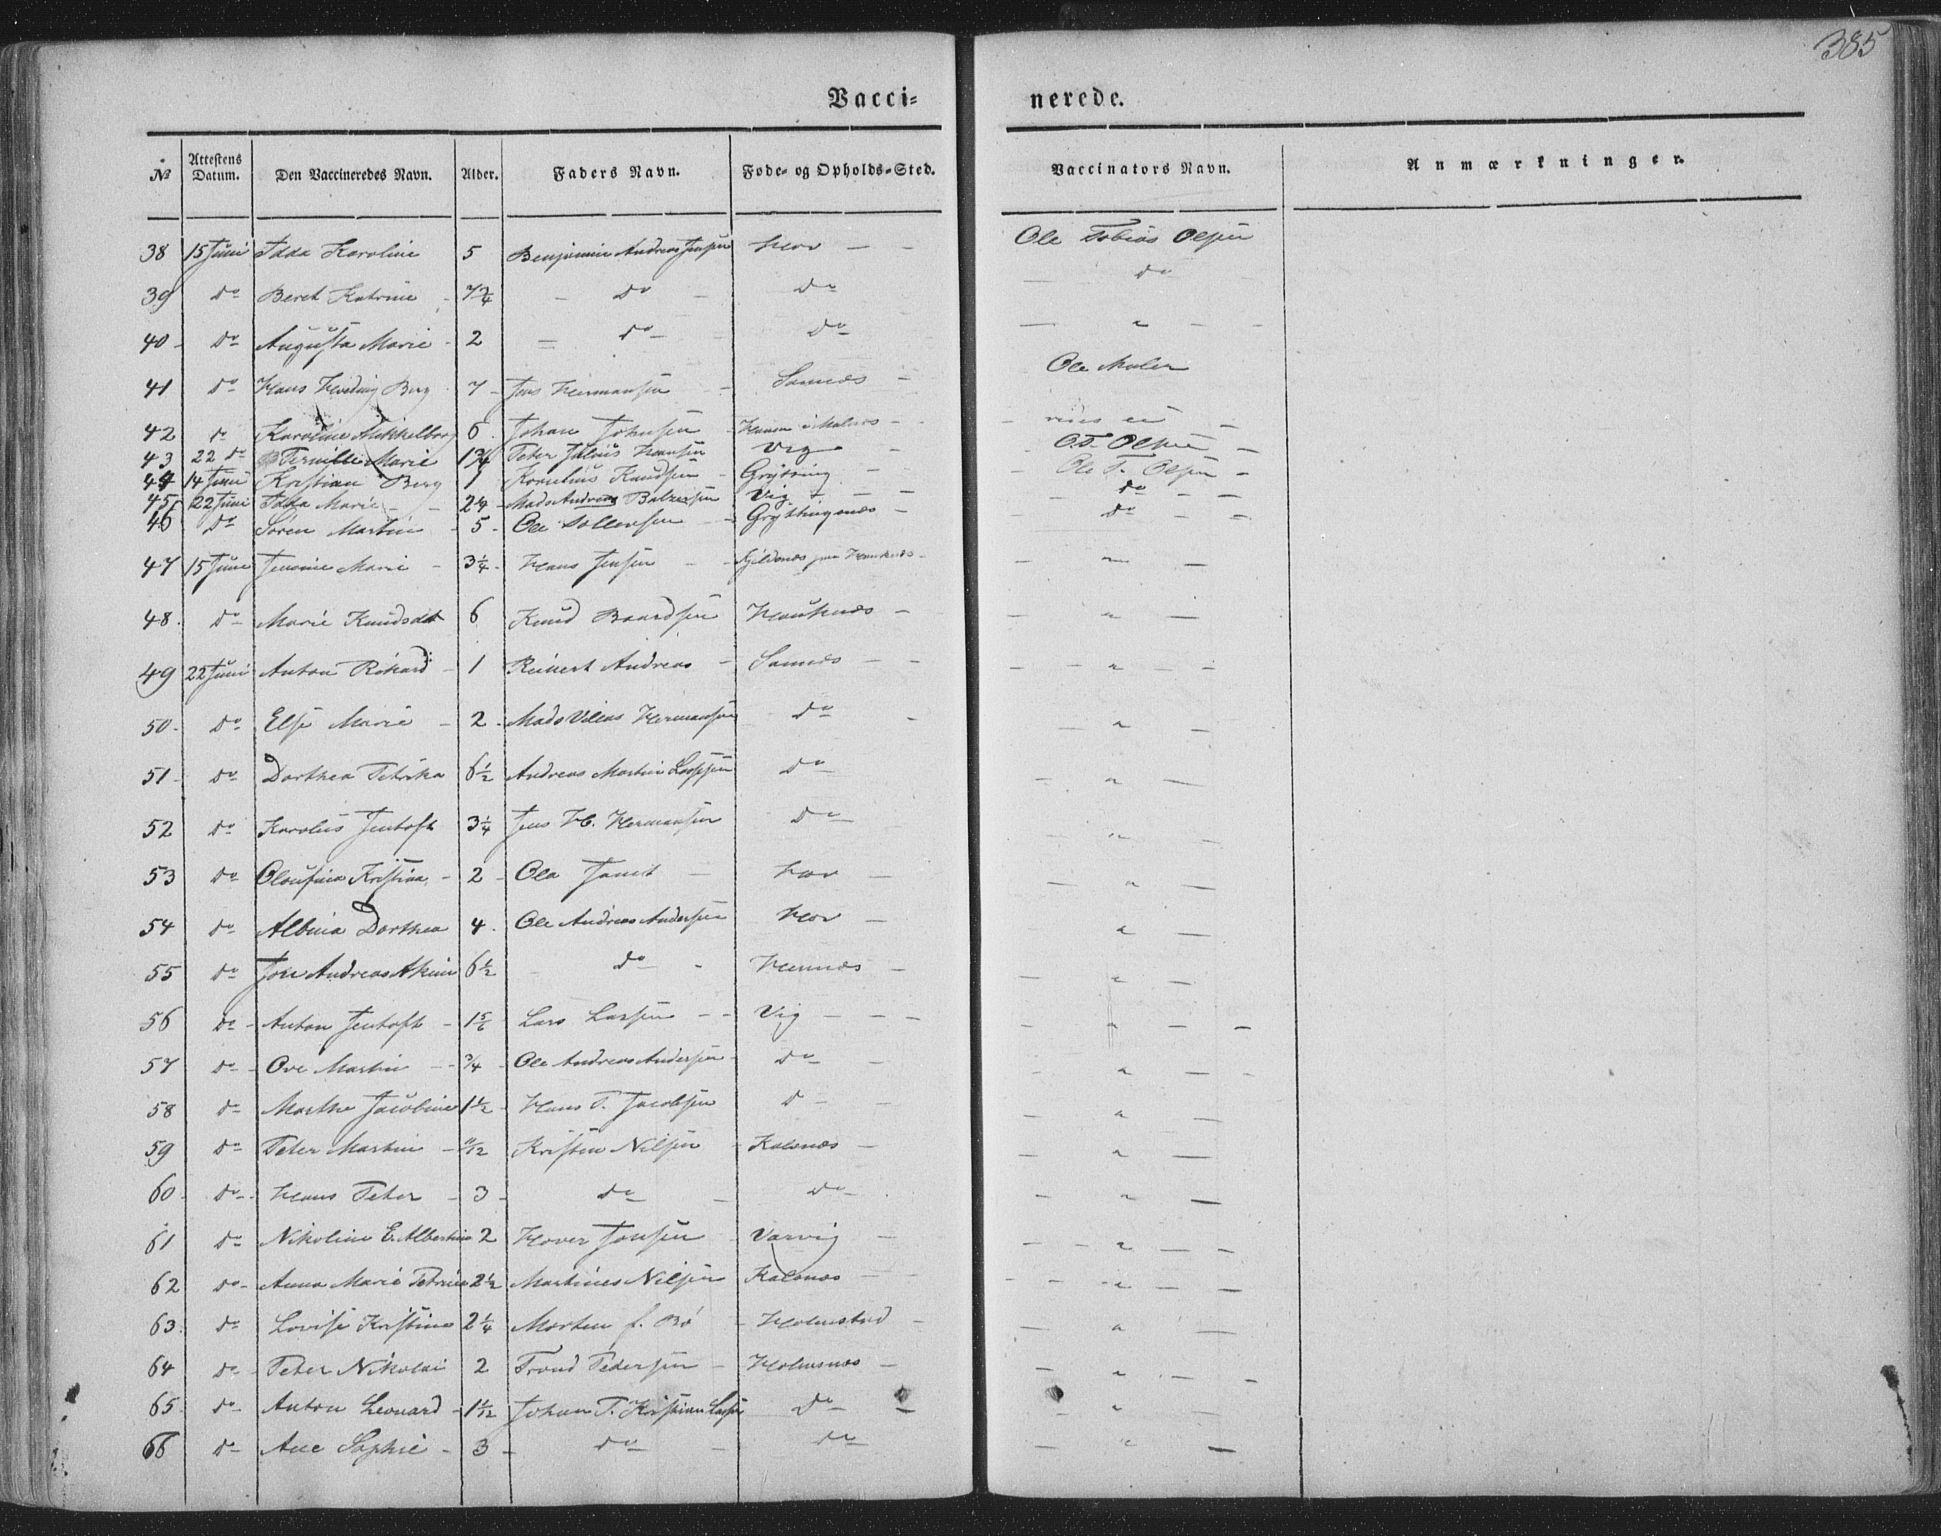 385
Vacci- nerede.
№ Attestens Datum. Den Vaccineredes Navn. Alder. Faders Navn. Føde- og Opholds-Sted. Vaccinators Navn. Anmærkninger.
38 15 Juni Idda Karoline 5 Benjamin Andreas Jensen Hov Ole Tobias Olsen
39 Do Beret Katrine 7 3/4 Do Do Do
40 Do Augusta Marie 2 Do Do "
41 Do Hans Hveding Berg 7 Jens Hermansen Sannæs Ole Maler
42 Do Karoline Mikkelborg 6 Johan Johnsen
43 22 Do Pernille Marie 1 3/4 Peter Julius Hansen Vig O.T. Olsen
44 14 Juni Kristian Berg 1 Kornelius Knudsen Grytting Ole T. Olsen
45 22 Juni Idda Marie 2 1/4 Mads Andreas Balzersen Vig Do
46 Do Søren Martin 5 Ole Tollevsen Gryttingsnæs Do
47 15 Juni Jensine Marie 3 1/4 Hans Jensen "
48 Do Marie Knudsdat 6 Knud Baardsen Hauknæs "
49 22 Juni Anton Rikard 1 Reinert Andreas Sannæs "
50 Do Else Marie 2 Mads Vilius Hermansen Do "
51 Do Dorthea Petrika 6 1/2 Andreas Martin Do "
52 Do Karolius Jentoft 3 1/4 Jens H. Hermansen Do "
53 Do Oloufina Kristina 2 Ola Hov "
54 Do Albina Dorthea 4 Ole Andreas Andersen Hov "
55 Do Jon Andreas 6 1/2 Do Hemnæs "
56 Do Anton Jentoft 1 5/6 Lars Larsen Vig "
57 Do Ove Martin 3/4 Ole Andreas Andersen Do "
58 Do Marthe Jacobine 1 1/2 Hans P. Jacobsen D "
59 Do Peter Martin 11/12 Kristen Nilsen Kalsnæs "
60 Do Hans Peter 3 Do Do "
61 Do Nikoline E. Albertine 2 Hover Jonsen Varvig "
62 Do Anna Marie Petrine 2 1/2 Martinus Nilsen Kalsnæs "
63 Do Lovise Kristine 2 1/4 Morten f. Bø Holmstad "
64 Do Peter Nikolai 2 Trond Pedersen Holmsnæs "
65 Do Anton Leonard 1 1/12 Johan P. Kristian Do "
66 Do Ane Sophie 3 Do Do "